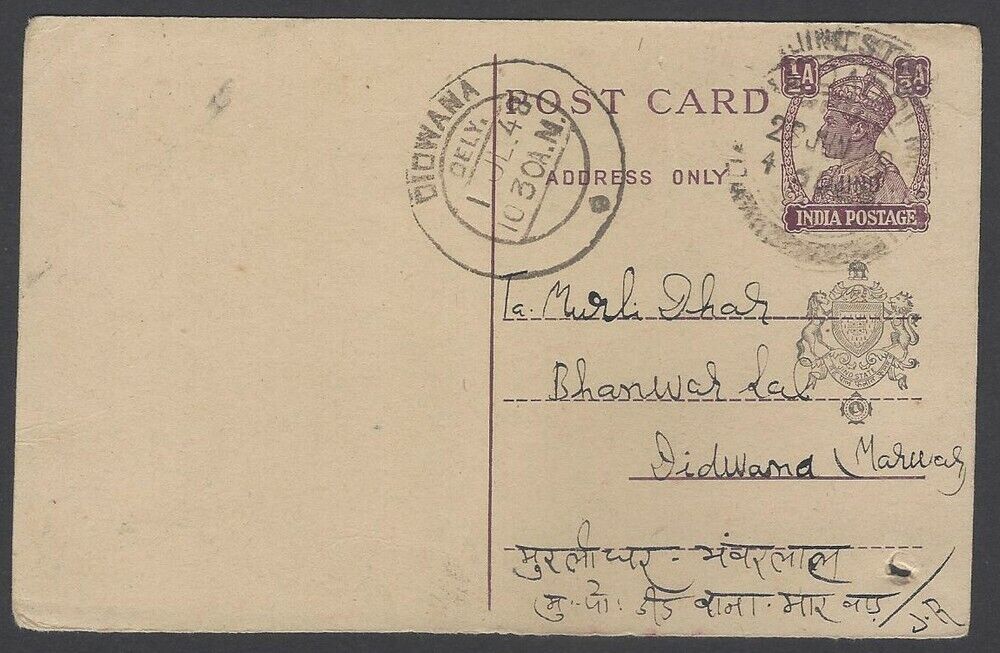 ½A ½A
POST CARD
ADDRESS ONLY
JIND
INDIA POSTAGE
DIDWANA
DELY.
1 JL. 48
10 30 A.M.
JIND STATE
Murli Dhar
Bhanwar Lal
Didwana (Marwar)
मुरलीधर - भंवरलाल
मु. पो. डीडवाना - मारवाड़ / J.R